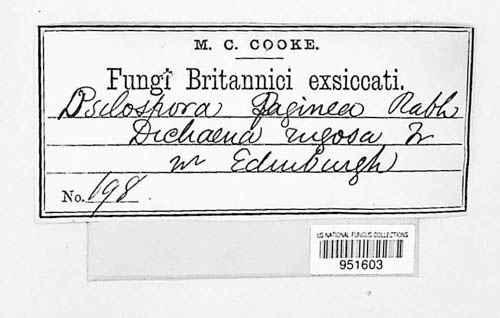 M. C. COOKE.
Fungi Britannici exsiccati.
Psilospora faginea Rabh
Dichaena rugosa Fr
nr Edinburgh
No. 198
US NATIONAL FUNGUS COLLECTIONS
951603